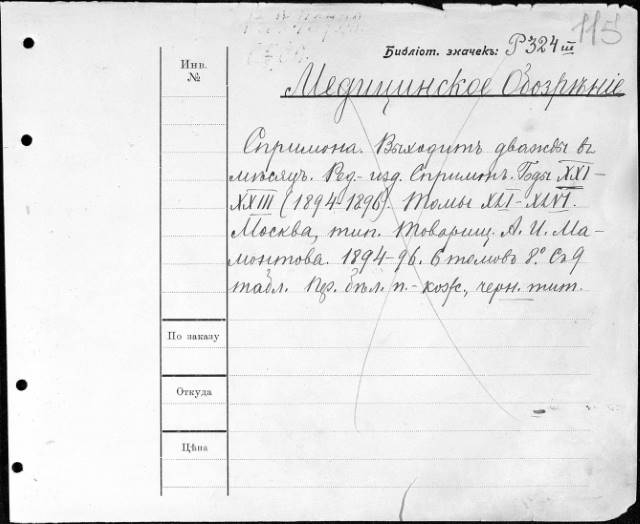 115
Библіот. значекъ: Р324 III
Инв.
№
Медицинское Обозрѣніе
Спримона. Выходитъ дважды въ
мѣсяцъ. Ред.-изд. Спримонъ. Годы XXI-
XXIII (1894-1896). Томы XLI-XLVI.
Москва, тип. Товарищ. А. И. Ма-
монтова. 1894-96. 6 томовъ 8.° Съ 9
табл. Пр. бѣл. п.-кож., черн. тит.
По заказу
Откуда
Цѣна